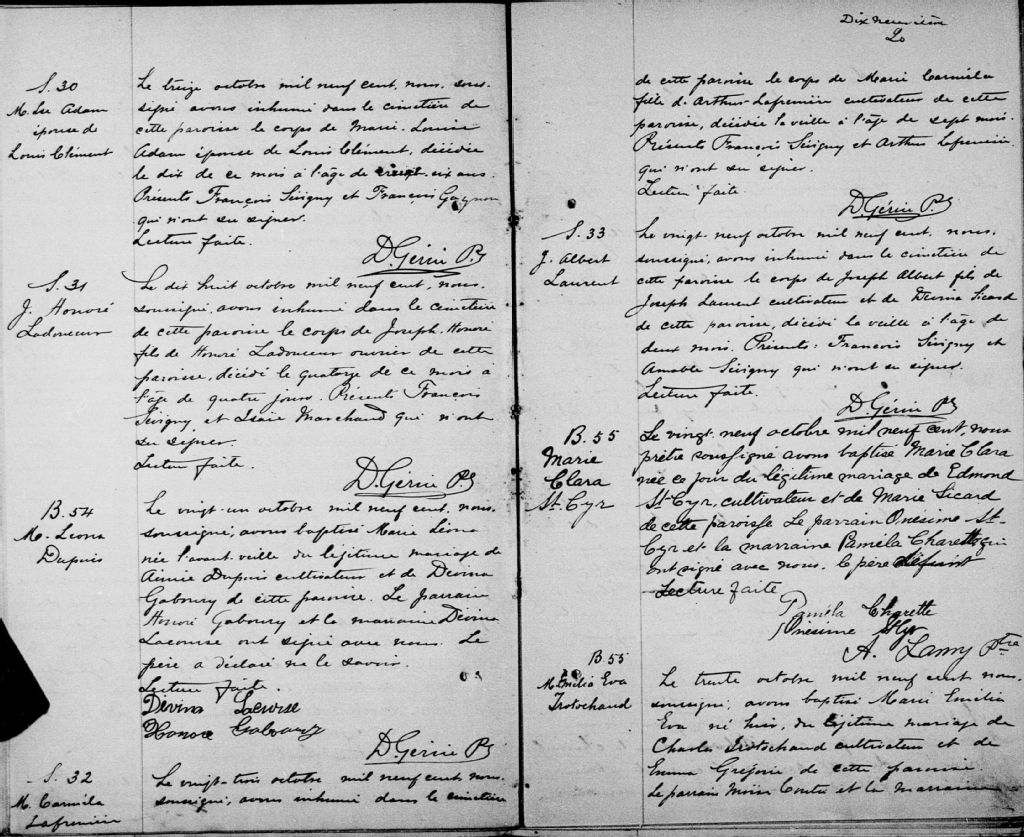 S. 30
M. Lse Adam
épouse de
Louis Clément
Le treize octobre mil neuf cent, nous, sous-
signé avons inhumé dans le cimetière de
cette paroisse le corps de Marie-Louise
Adam épouse de Louis Clément, décédée
le dix de ce mois à l'âge de ans.
Présents François Sévigny et François Gagnon
qui n'ont su signer.
Lecture faite.
D. Gérin P.
S. 31
J. Honoré
Ladouceur
Le dix huit octobre mil neuf cent, nous,
soussigné, avons inhumé dans le cimetière
de cette paroisse le corps de Joseph-Honoré
fils de Honoré Ladouceur ouvrier de cette
paroisse, décédé le quatorze de ce mois à
l'âge de quatre jours. Présents François
Sévigny, et Isaie Marchand qui n'ont
su signer.
Lecture faite.
D. Gérin P
B. 54
M. Leona
Dupuis
Le vingt-un octobre mil neuf cent, nous,
soussigné, avons baptisé Marie Léona
née l'avant-veille du légitime mariage de
Aimée Dupuis cultivateur et de Divina
Gaboury de cette paroisse. Le parrain
Honoré Gaboury et la marraine Divina
Lacourse ont signé avec nous. Le
père a déclaré ne le savoir.
Lecture faite.
Divina Lacourse
Honoré Gaboury
D. Gérin P
S. 32
M. Carméla
Lafrenière
Le vingt-trois octobre mil neuf cent nous,
soussigné, avons inhumé dans le cimetière
Dix neuvième
20
de cette paroisse le corps de Marie Carméla
fille d'Arthur Lafrenière cultivateur de cette
paroisse, décédée la veille à l'âge de sept mois.
Présents François Sévigny et Arthur Lafrenière
qui n'ont su signer.
Lecture faite.
D. Gérin P.
S. 33
J. Albert
Laurent
Le vingt-neuf octobre mil neuf cent, nous,
soussigné, avons inhumé dans le cimetière de
cette paroisse le corps de Joseph Albert fils de
Joseph Laurent cultivateur et de Sicard
de cette paroisse, décédé la veille à l'âge de
deux mois. Présents: François Sévigny et
Amable Sévigny qui n'ont su signer.
Lecture faite.
D. Gérin P
B. 55
Marie
Clara
St-Cyr
Le vingt-neuf octobre mil neuf cent, nous
prêtre soussigné avons baptisé Marie Clara
née ce jour du légitime mariage de Edmond
St-Cyr, cultivateur et de Marie Sicard
de cette paroisse Le parrain Onésime St-
Cyr et la marraine Paméla Charette qui
ont signé avec nous. le père
Lecture faite
Paméla Charette
Onésime StCyr
A. Lamy Ptre
B. 55
M. Emilia Eva
Trotochaud
Le trente octobre mil neuf cent nous,
soussigné, avons baptisé Marie Emilia
Eva né hier, du légitime mariage de
Charles Trotochaud cultivateur et de
Emma Grégoire de cette paroisse.
Le parrain Moïse et la marraine